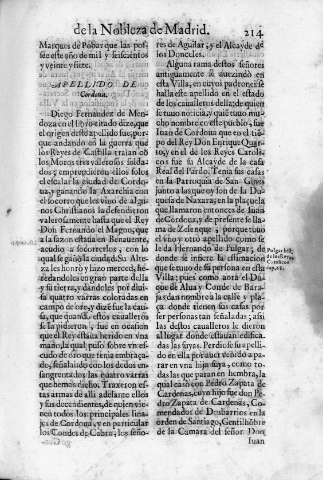 de la Nobleza de Madrid. 214
Marques de Pobar que las pos-
see este año de mil y seiscientos
y veinte y siete.
APELLIDO DE
Cordoua.
Diego Fernandez de Men-
doza en el libro citado dize, que
el origen deste apellido fue, por-
que andando en la guerra que
los Reyes de Castilla traian con
los Moros tres valerosos solda-
dos, emprendieron ellos solos
el escalar la ciudad de Cordo-
ua, y ganando la Axarchia con
el socorro que les vino de algu-
nos Christianos la defendieron
valerosamente hasta que el Rey
Don Fernando el Magno, que
a la sazon estaua en Benauente,
acudio a socorrerlos, con lo
qual se ganò la ciudad. Su Alte-
za les honrò y hizo merced, he-
redandolos en gran parte della
y su tierra, y dandoles por diui-
sa quatro varras coloradas en
campo de oro, y dize fue la cau-
sa, que quando estos caualleros
se la pidieron, fue en ocasion
que el Rey estaua herido en vna
mano, la qual puso sobre vn es-
cudo de oro que tenia embraça-
do, señalando con los dedos en-
sangrentados las quatro varras
que hemos dicho. Traxeron es-
tas armas de alli adelante ellos
y sus decendientes, de quien vie-
nen todos los principales lina-
jes de Cordoua, y en particular
los Condes de Cabra, los seño-
res de Aguilar, y el Alcayde de
los Donceles.
Alguna rama destos señores
antiguamente se auezindò en
esta Villa, en cuyos padrones se
halla este apellido en el estado
de los caualleros della; de quien
se tuuo noticia, y quiẽ tuuo mu-
cho nombre en este pueblo, fue
Iuan de Cordoua que en el tiẽ-
po del Rey Don Enrique Quar-
to, y en el de los Reyes Catoli-
cos fue su Alcayde de la casa
Real del Pardo. Tenia sus casas
en la Parroquia de San Gines
junto a las que oy son de la Du-
quesa de Naxara, en la plaçuela
que llamaron entonces de Iuan
de Cordoua, y de presente se lla-
ma de Zelenque, porque tuuo
el vno y otro apellido como se
lee en Hernando de Pulgar, de
donde se infiere la estimacion
que se tuuo de su persona en esta
Villa; pues como aora el Du-
que de Alua y Conde de Bara-
jas dan nombre a la calle y pla-
ça donde tienen sus casas por
ser personas tan señaladas; assi
las destos caualleros le dieron
al lugar donde estauan edifica-
das las suyas. Perdiose su apelli-
do en ella por auer venido a pa-
rar en vna hija suya, como to-
das las que paran en hembra, la
qual casò con Pedro Zapata de
Cardenas, cuyo hijo fue don Pe-
dro Zapata de Cardenas, Co-
mendador de Dosbarrios en la
orden de Santiago, Gentilhõbre
de la Camara del señor Don
Iuan